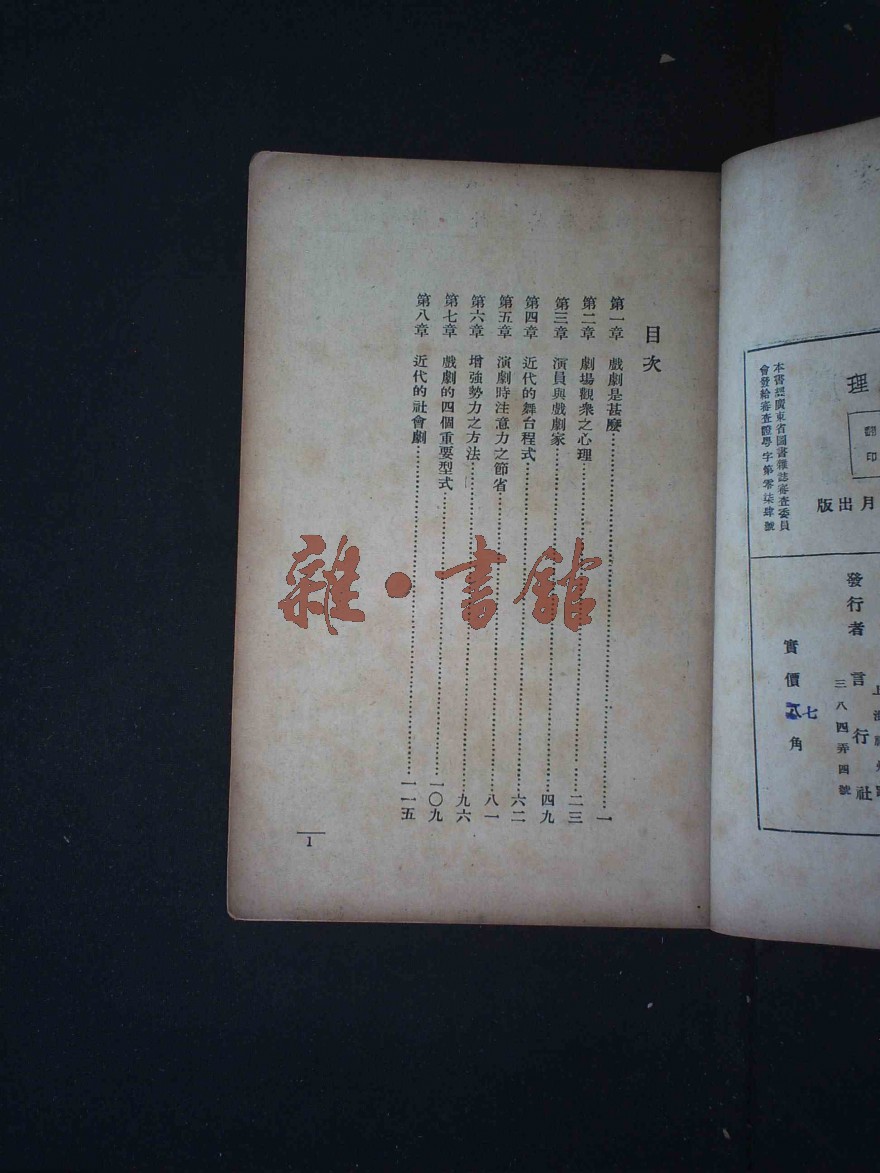 理
翻印
月出版
本書經廣東省圖書雜誌審查委員
會發給審查證學字第零柒肆號
發行者
言行社
三八四弄四號
實價七角
目次
第一章 戲劇是甚麼……一
第二章 劇場觀衆之心理……二三
第三章 演員與戲劇家……四九
第四章 近代的舞台程式……六二
第五章 演劇時注意力之節省……八一
第六章 增強勢力之方法……九六
第七章 戲劇的四個重要型式……一〇九
第八章 近代的社會劇……一一五
1
雜·書館